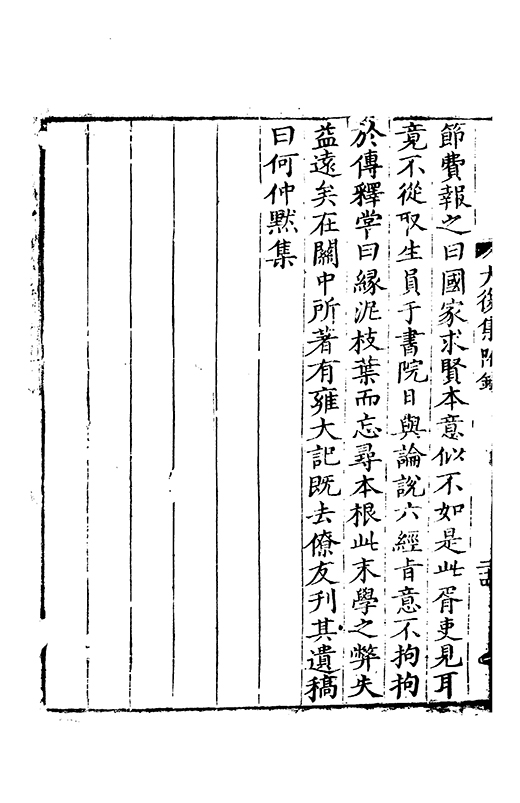 節費報之曰國家求賢本意似不如是此胥吏見耳
竟不從取生員于書院日與論說六經旨意不拘拘
於傳釋常曰緣泥枝葉而忘尋本根此末學之弊失
益遠矣在關中所著有雍大記既去僚友刊其遺稿
曰何仲黙集
大復集附錄